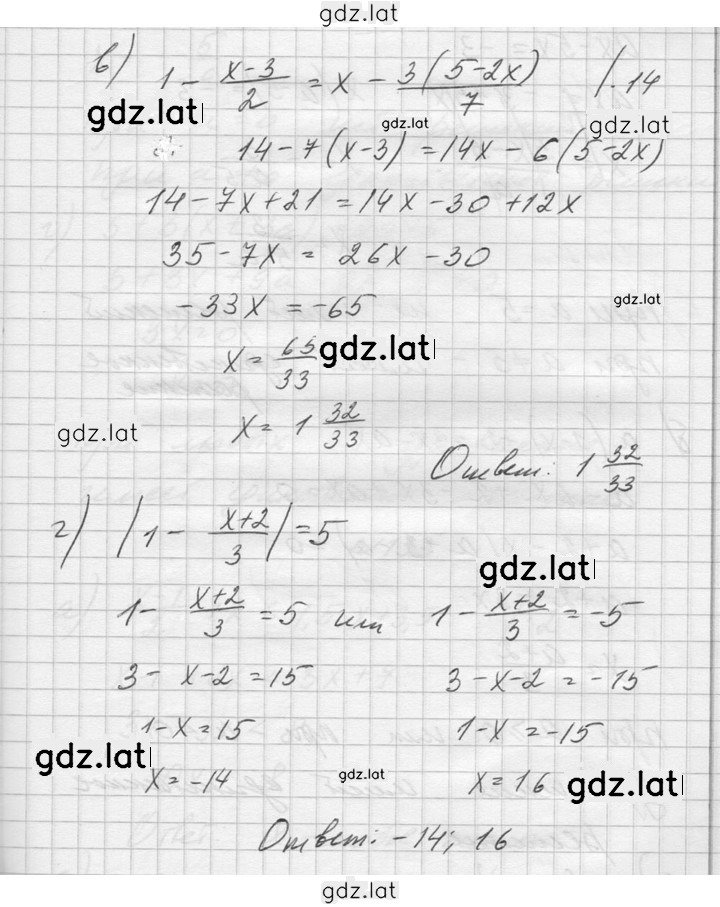 gdz.lat
в) 1 - (x-3)/2 = x - 3(5-2x)/7 | · 14
gdz.lat gdz.lat gdz.lat
14 - 7(x-3) = 14x - 6(5-2x)
14 - 7x + 21 = 14x - 30 + 12x
35 - 7x = 26x - 30
-33x = -65
gdz.lat
x = 65/33
gdz.lat
x = 1 32/33
gdz.lat
Ответ: 1 32/33
г) |1 - (x+2)/3| = 5
gdz.lat
1 - (x+2)/3 = 5 или 1 - (x+2)/3 = -5
3 - x - 2 = 15 3 - x - 2 = -15
1 - x = 15 1 - x = -15
gdz.lat
x = -14 gdz.lat x = 16 gdz.lat
Ответ: -14; 16
gdz.lat